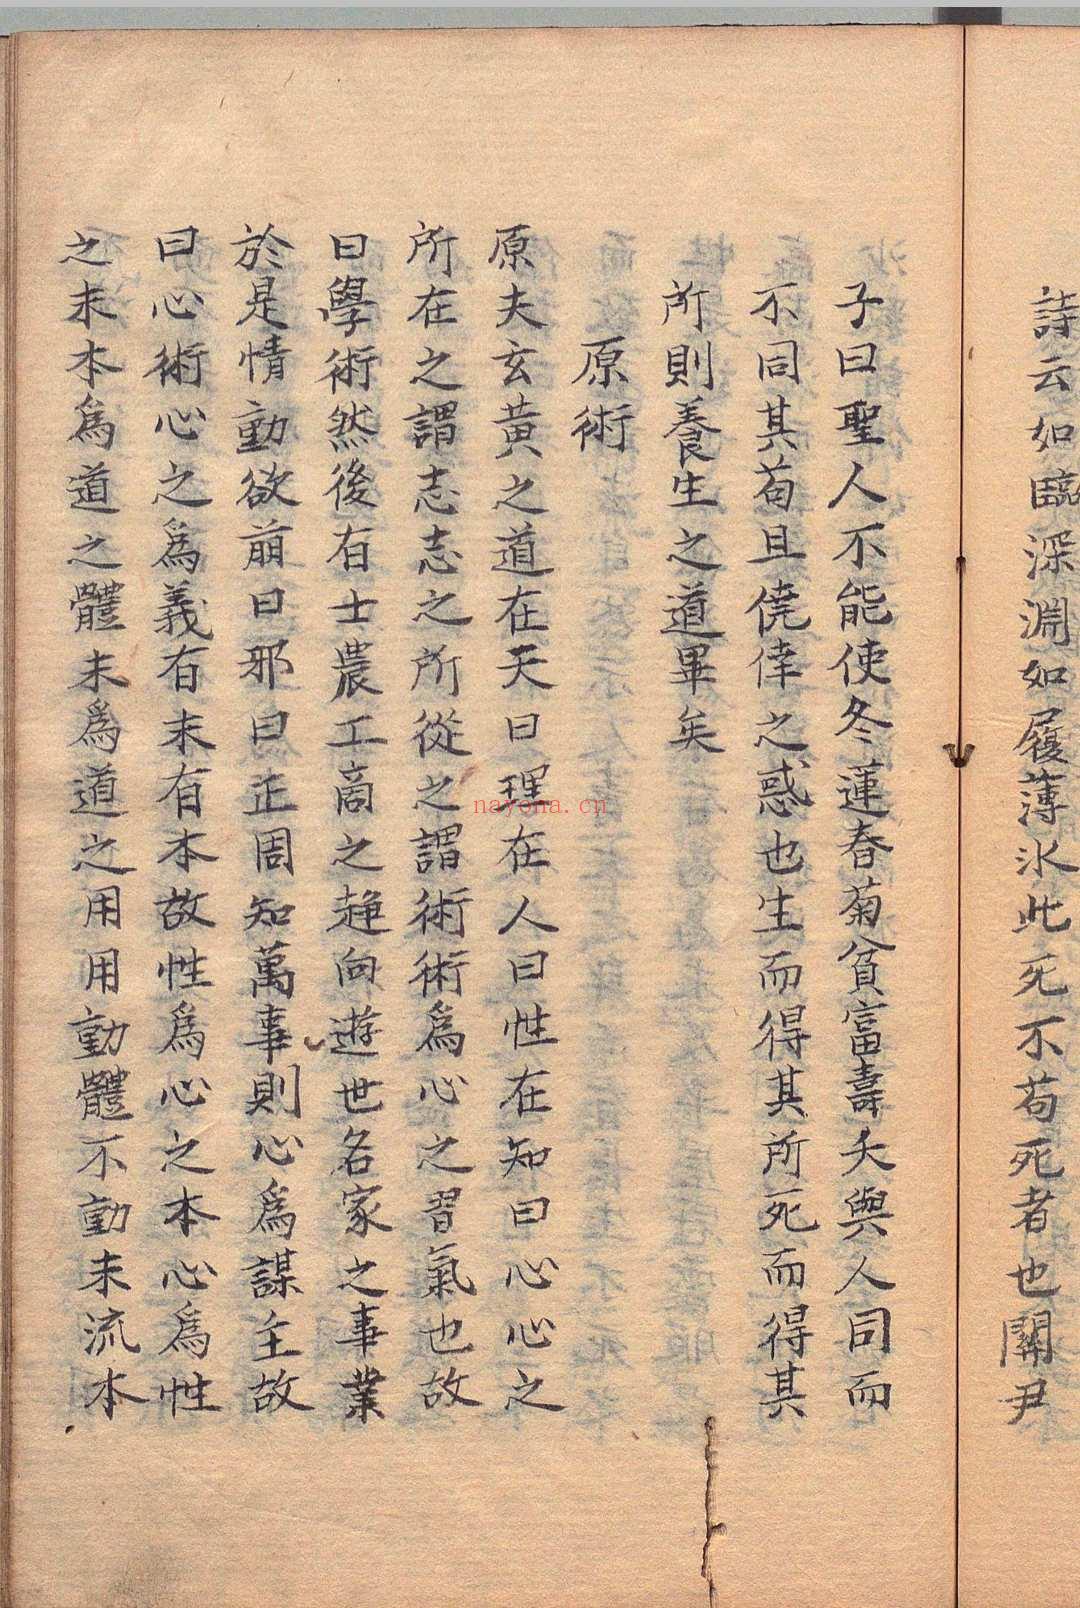 詩云如臨深淵如履薄氷此死不苟死者也關尹
子曰聖人不能使冬蓮春菊貧富壽夭與人同而
不同其苟且僥倖之惑也生而得其所死而得其
所則養生之道畢矣
原術
原夫玄黃之道在天曰理在人曰性在知曰心心之
所在之謂志志之所從之謂術術爲心之習氣也故
曰學術然後有士農工商之趣向遊世名家之事業
於是情動欲萠曰邪曰正周知萬事則心爲謀主故
曰心術心之爲義有末有本故性爲心之本心爲性
之末本爲道之體末爲道之用用動體不動末流本
nayona.cn